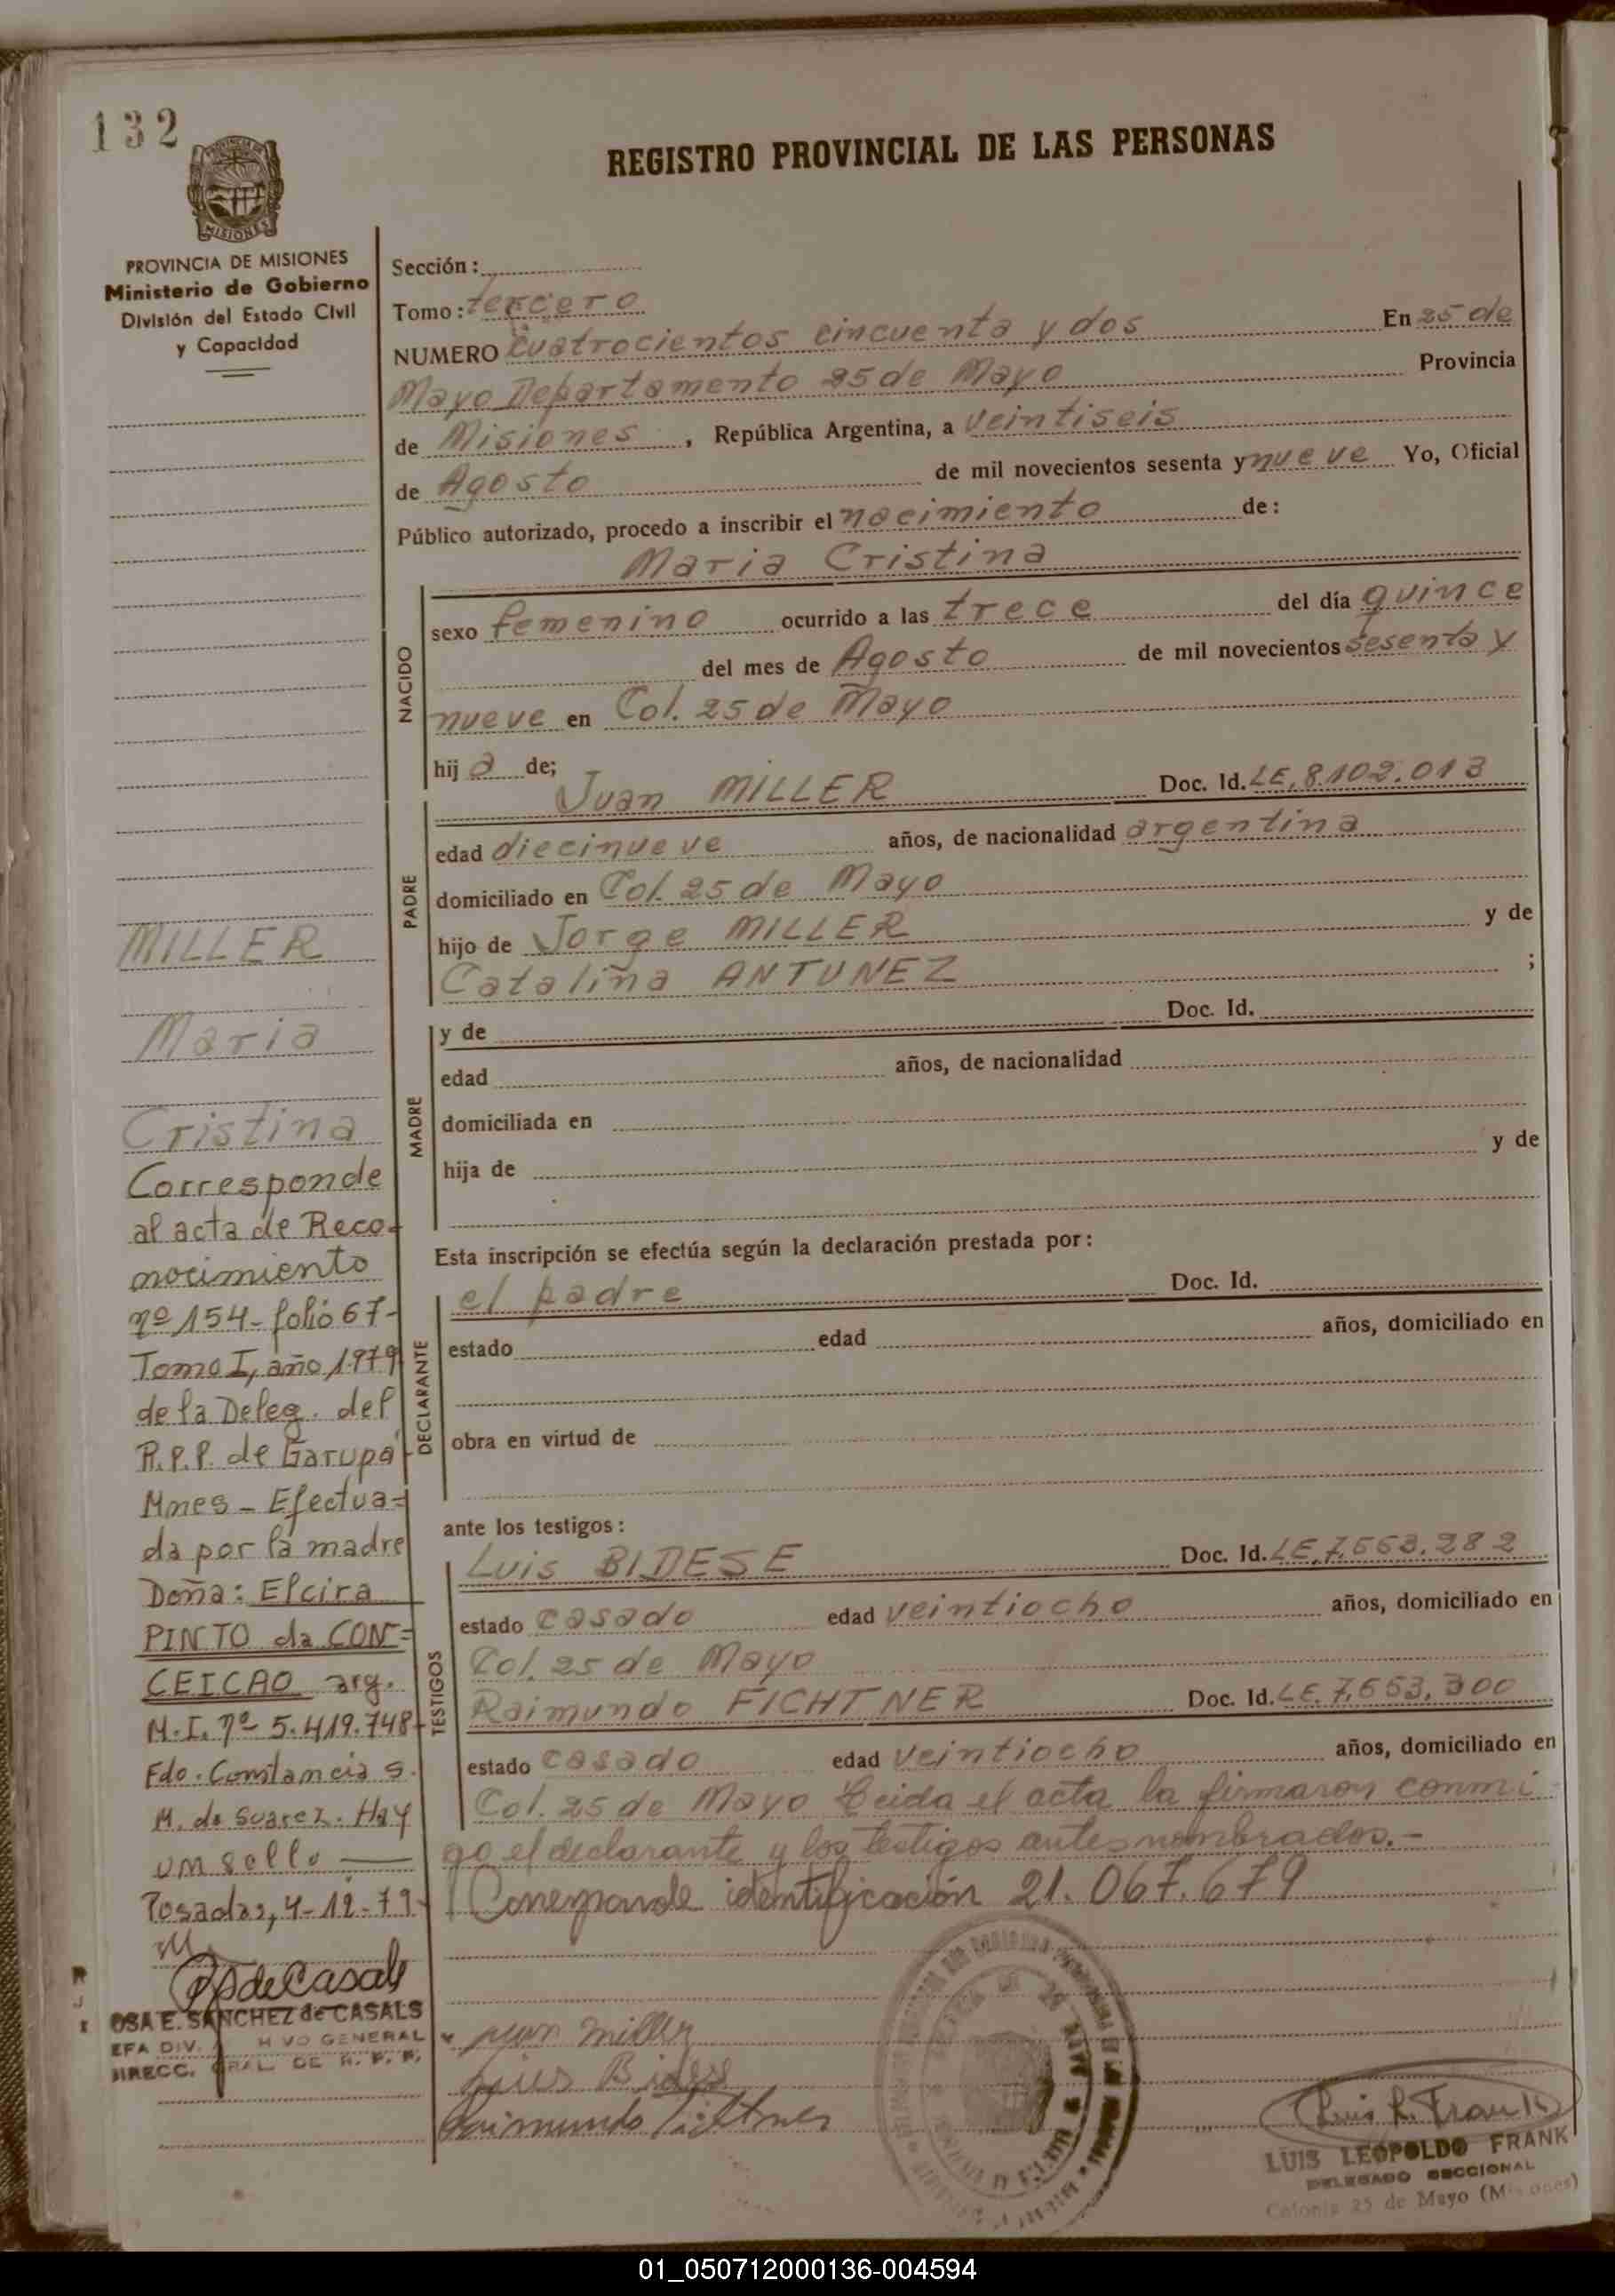 132
REGISTRO PROVINCIAL DE LAS PERSONAS
PROVINCIA DE MISIONES
MISIONES
PROVINCIA DE MISIONES
Ministerio de Gobierno
División del Estado Civil
y Capacidad
MILLER
Maria
Cristina
Corresponde
al acta de Reco-
nocimiento
nº 154- folio 67-
Tomo I, año 1979
de la Deleg. del
R.P.P. de Garupá-
Mnes - Efectua=
da por la madre
Doña: Elcira
PINTO da CON=
CEICAO arg.
M.I. nº 5.419.748-
Fdo. Constancia S.
M. de Suarez. Hay
un sello —
Posadas, 4-12-79-
OSA E. SANCHEZ de CASALS
EFA DIV. HIVO GENERAL
DIRECC. GRAL. DE R. P. P.
Sección:
Tomo: tercero
NUMERO Cuatrocientos cincuenta y dos En 25 de
Mayo Departamento 25 de Mayo Provincia
de Misiones, República Argentina, a veintiseis
de Agosto de mil novecientos sesenta y nueve Yo, Oficial
Público autorizado, procedo a inscribir el nacimiento de:
Maria Cristina
NACIDO
sexo femenino ocurrido a las trece del día quince
del mes de Agosto de mil novecientos sesenta y
nueve en Col. 25 de Mayo
hij a de;
PADRE
Juan MILLER Doc. Id. LE, 8.102.013
edad diecinueve años, de nacionalidad argentina
domiciliado en Col. 25 de Mayo
hijo de Jorge MILLER y de
Catalina ANTUNEZ ;
MADRE
y de Doc. Id.
edad años, de nacionalidad
domiciliada en
hija de y de
Esta inscripción se efectúa según la declaración prestada por:
DECLARANTE
el padre Doc. Id.
estado edad años, domiciliado en
obra en virtud de
ante los testigos:
TESTIGOS
Luis BIDESE Doc. Id. LE, 7.553.282
estado casado edad veintiocho años, domiciliado en
Col. 25 de Mayo
Raimundo FICHTNER Doc. Id. LE. 7.553.300
estado casado edad veintiocho años, domiciliado en
Col. 25 de Mayo Leida el acta la firmaron conmi
go el declarante y los testigos antes nombrados.-
Corresponde identificación 21.067.679
Juan Miller
Luis Bidese
Raimundo Fichtner
Luis L. Frank
LUIS LEOPOLDO FRANK
DELEGADO SECCIONAL
Colonia 25 de Mayo (Misiones)
01_050712000136-004594